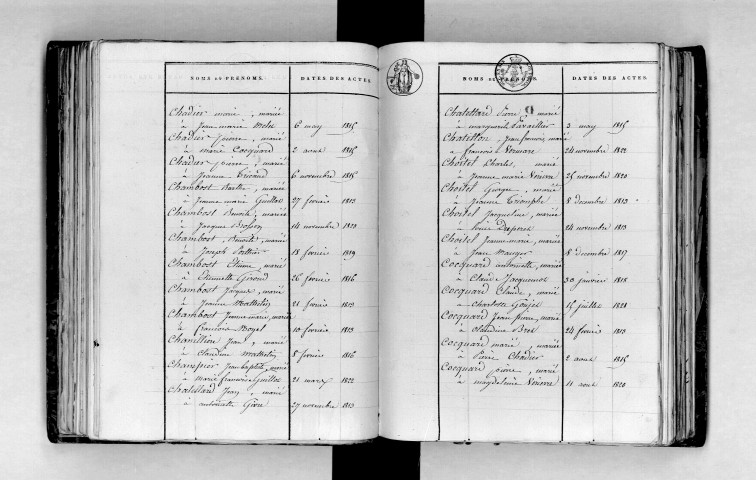 NOMS ET PRENOMS. DATES DES ACTES.
Chadier marie, marié
à Jean marie Melei 6 may 1815
Chadier pierre, marié
à marie Cocquard 2 aout 1815
Chadier pierre, marié
à Jeanne 6 novembre 1815
Chambost Barthe, marié
à Jeanne marie Guillot 27 fevrier 1813
Chambost Benoite, mariée
à Jacques 14 novembre 1820
Chambost, Benoite, mariée
à Joseph 18 fevrier 1819
Chambost Etienne, marié
à Etiennette Giroud 26 fevrier 1816
Chambost Jacques, marié
à Jeanne Mathelin 21 fevrier 1813
Chambost Jeanne marie, mariée
à francois Boyet 10 fevrier 1813
Chamillon Jean, marié
à Claudine Mathelin 8 fevrier 1816
Champier Jean baptiste, marié
à Marie francoise Guillot 21 mars 1822
Chatellard Jean, marié
à antoinette 27 novembre 1813
NOMS ET PRENOMS. DATES DES ACTES.
Chatellard Pierre, marié
à marguerite 3 may 1815
Chatellon Jean francois, marié
à francoise 24 novembre 1822
Choitel Charles, marié
à Jeanne marie 25 novembre 1820
Choitel George, marié
à Jeanne Triomphe 8 decembre 1813
Choitel Jacqueline, mariée
à 24 novembre 1813
Choitel Jeanne marie, mariée
à Jean 8 decembre 1817
Cocquard antoinette, mariée
à Claude Jacquemot 30 janvier 1818
Cocquard Claude, marié
à Charlotte 15 juillet 1821
Cocquard Jean pierre, marié
à Claudine Bret 24 fevrier 1813
Cocquard marie, mariée
à Pierre Chadier 2 aout 1815
Cocquard pierre, marié
à magdeleine 11 aout 1820